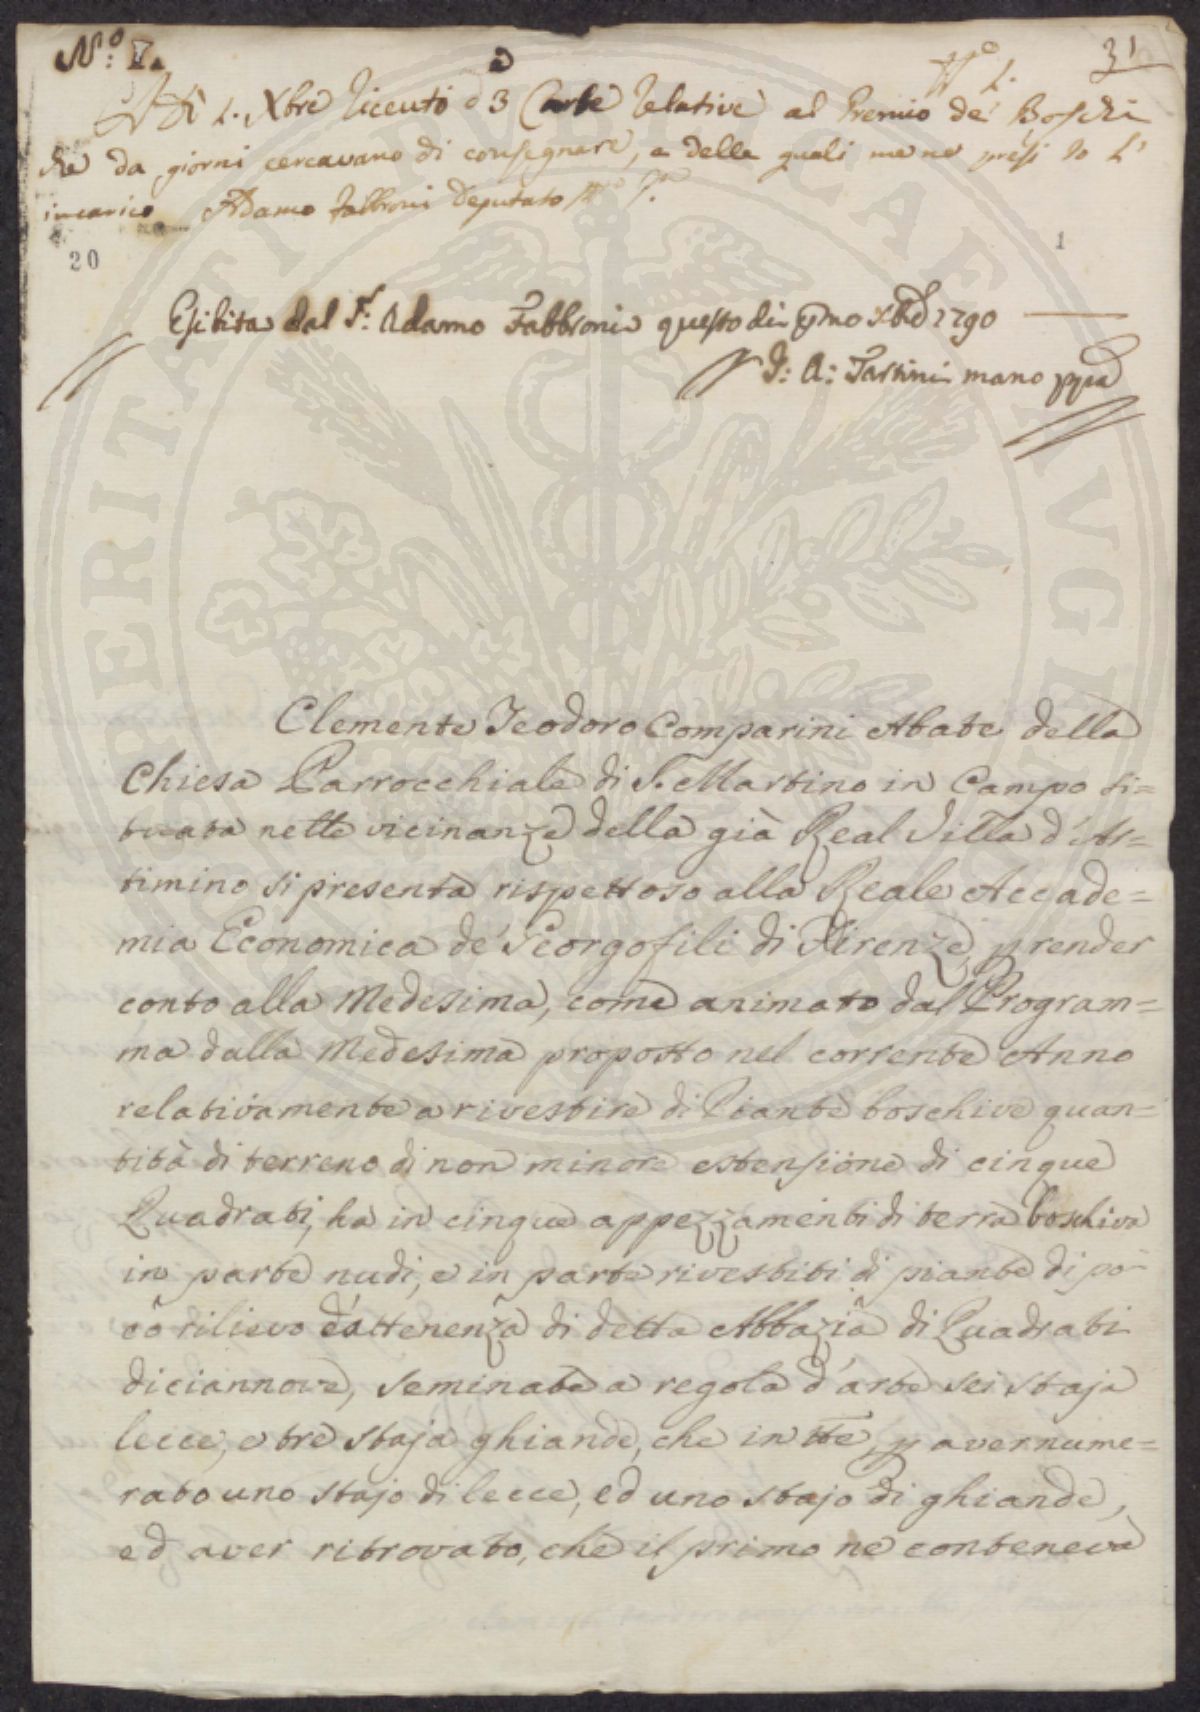 N.º I.
31
Nº 1.
A dì 1. Xbre ricevuto 3 Carte relative al Premio de' Boschi
che da giorni cercavano di consegnare, e delle quali me ne presi io l'
incarico Adamo Fabbroni Deputato
20
1
Esibita dal S.r Adamo Fabbroni questo dì pmo Xbre 1790
J: A: Tartini mano ppa
Clemente Teodoro Comparini Abate della
Chiesa Parrocchiale di S. Martino in Campo si=
tuata nelle vicinanze della già Real Villa d'Ar=
timino si presenta rispettoso alla Reale Accade=
mia Economica de' Georgofili di Firenze p render
conto alla Medesima, come animato dal Program=
ma dalla Medesima proposto nel corrente Anno
relativamente a rivestire di Piante boschive quan=
tità di terreno di non minore estensione di cinque
Quadrati, ha in cinque appezzamenti di terra boschiva
in parte nudi, e in parte rivestiti di piante di po=
co rilievo d'attenenza di detta Abbazia di Quadrati
diciannove, seminate a regola d'arte sei staja
lecce, e tre staja ghiande, che in tte, p aver nume=
rato uno stajo di lecce, ed uno stajo di ghiande,
ed aver ritrovato, che il primo ne conteneva
PERITATI PVBLICAE AVG